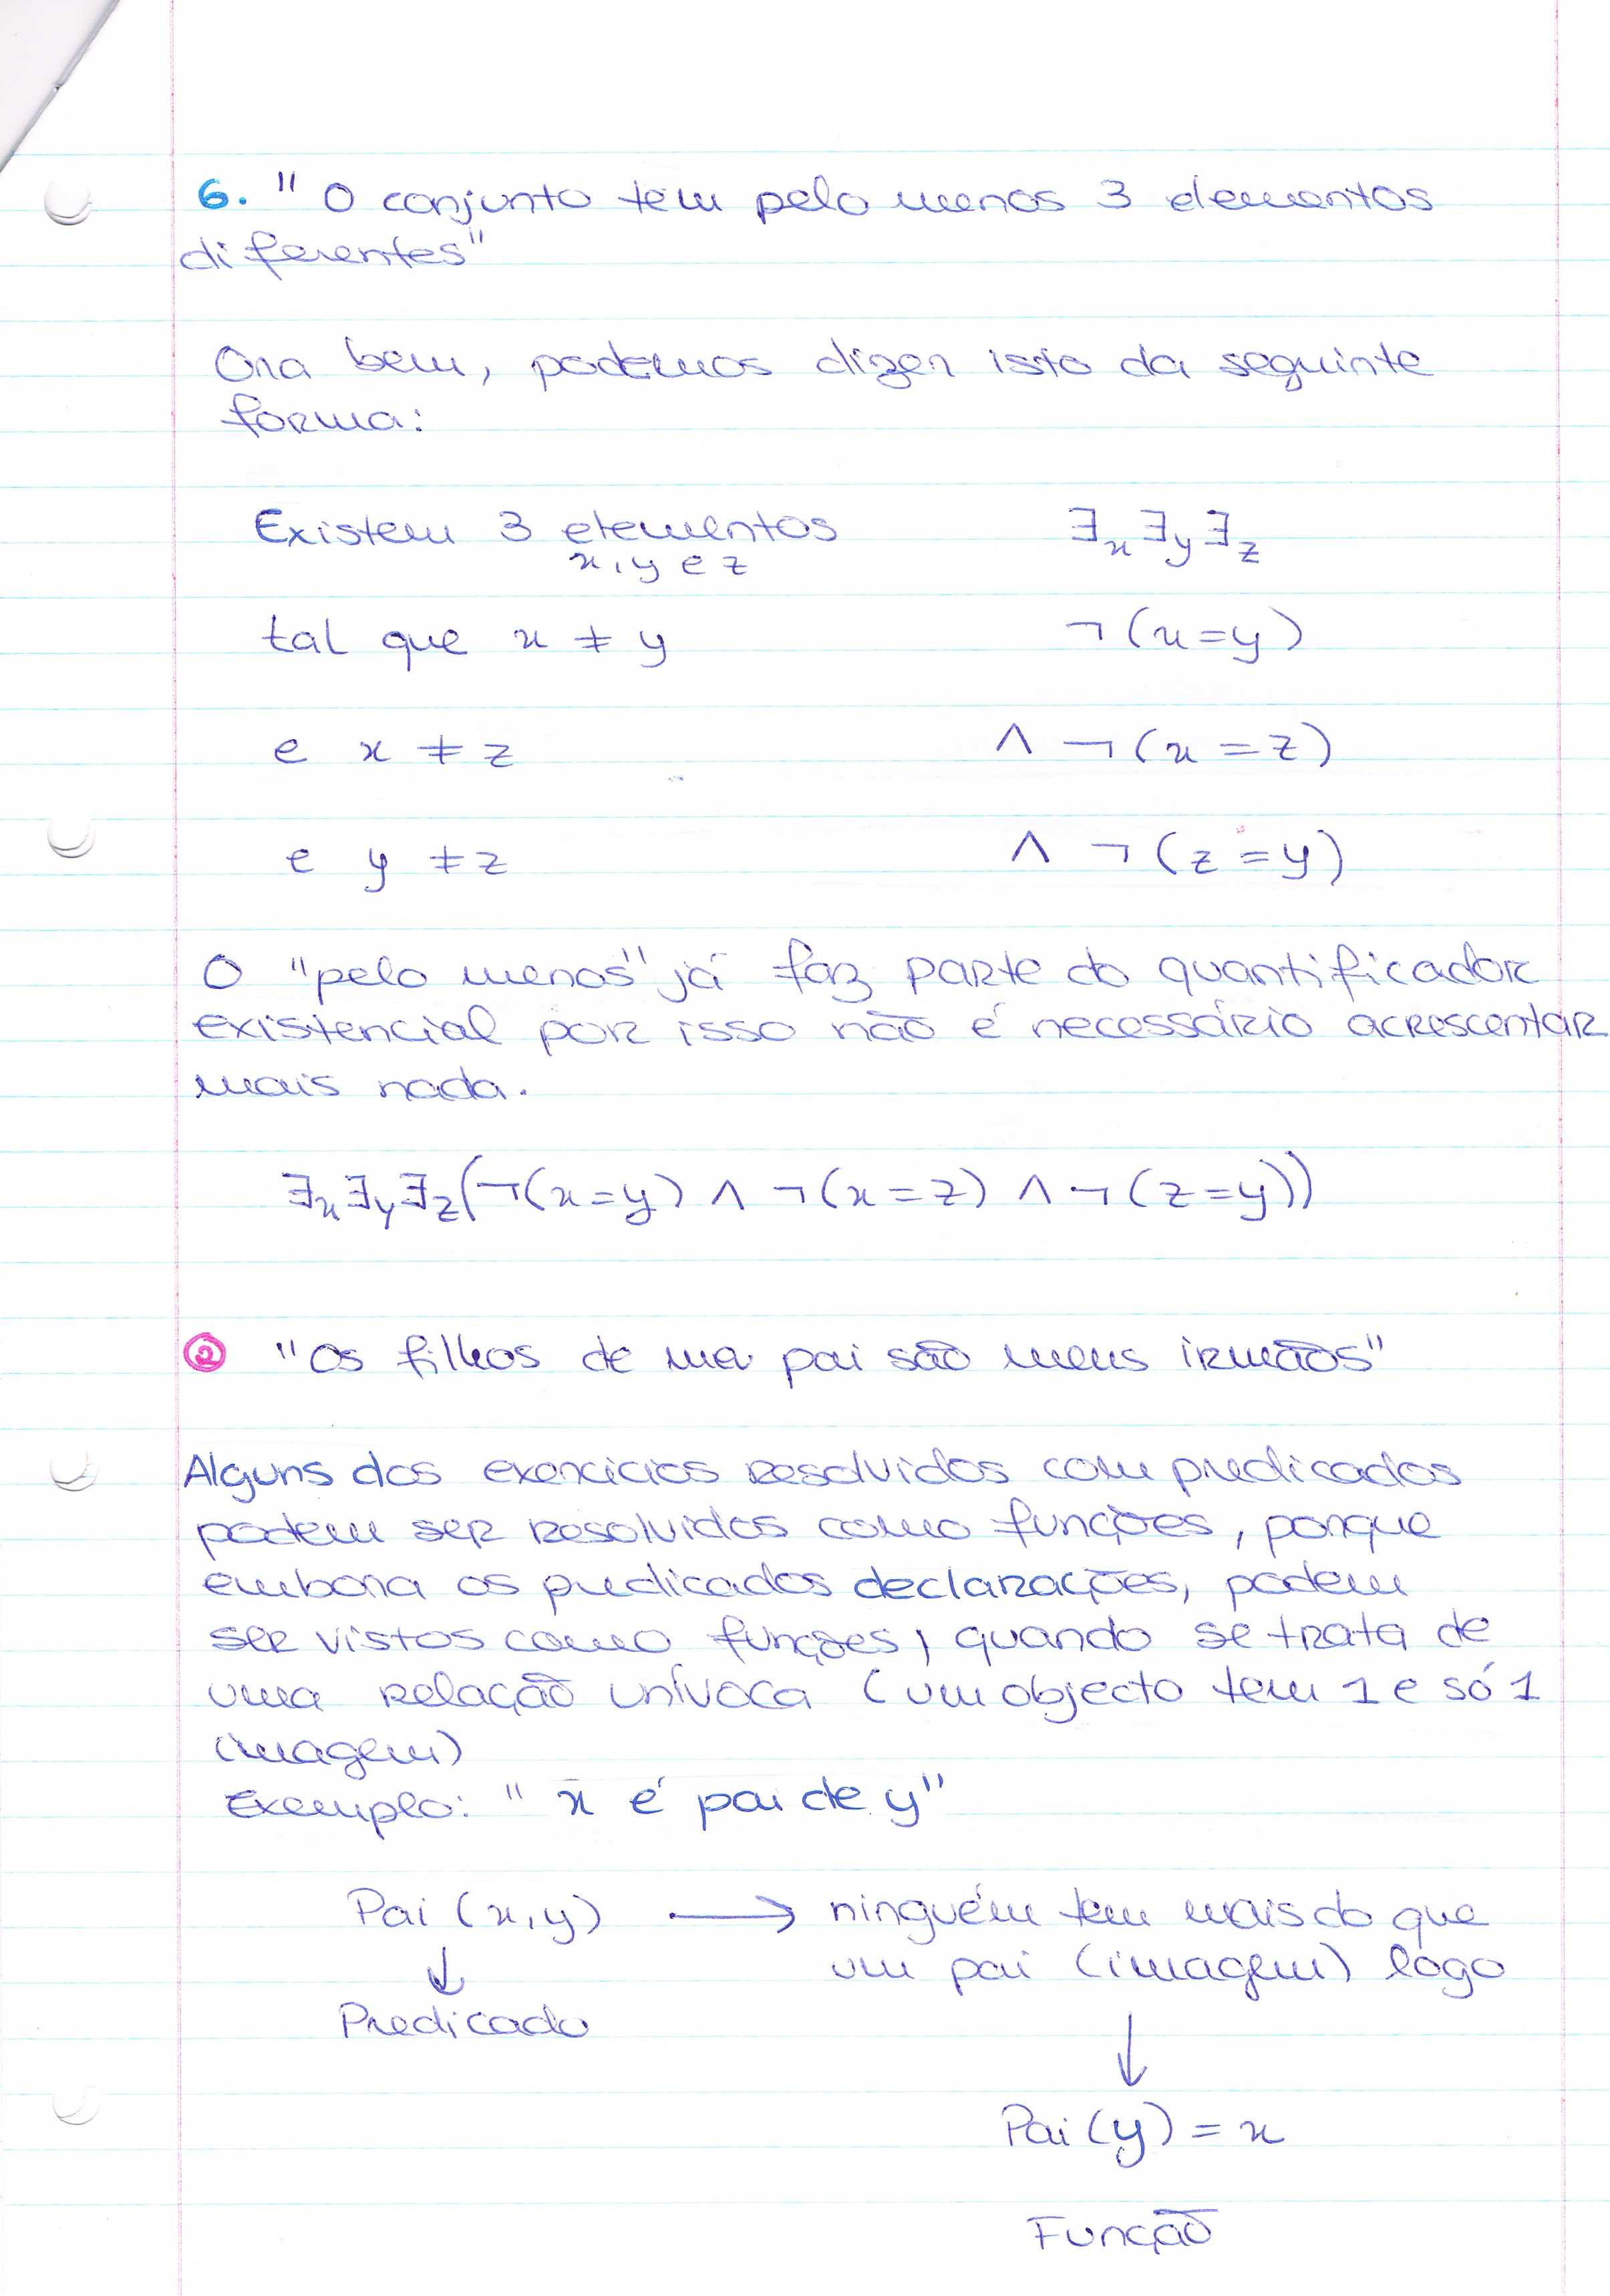 6. " O conjunto tem pelo menos 3 elementos
diferentes"
Ora bem, podemos dizer isto da seguinte
forma:
Existem 3 elementos ∃x ∃y ∃z
x, y e z
tal que x ≠ y ¬(x=y)
e x ≠ z ∧ ¬(x = z)
e y ≠ z ∧ ¬(z = y)
O "pelo menos" já faz parte do quantificador
existencial por isso não é necessário acrescentar
mais nada.
∃x ∃y ∃z(¬(x=y) ∧ ¬(x=z) ∧ ¬(z=y))
2 "Os filhos de meu pai são meus irmãos"
Alguns dos exercicios resolvidos com predicados
podem ser resolvidos como funções, porque
embora os predicados declarações, podem
ser vistos como funções, quando se trata de
uma relação unívoca (um objecto tem 1 e só 1
imagem)
Exemplo: " x é pai de y"
Pai (x, y) → ninguém tem mais do que
um pai (imagem) logo
↓
Predicado
↓
Pai (y) = x
Função